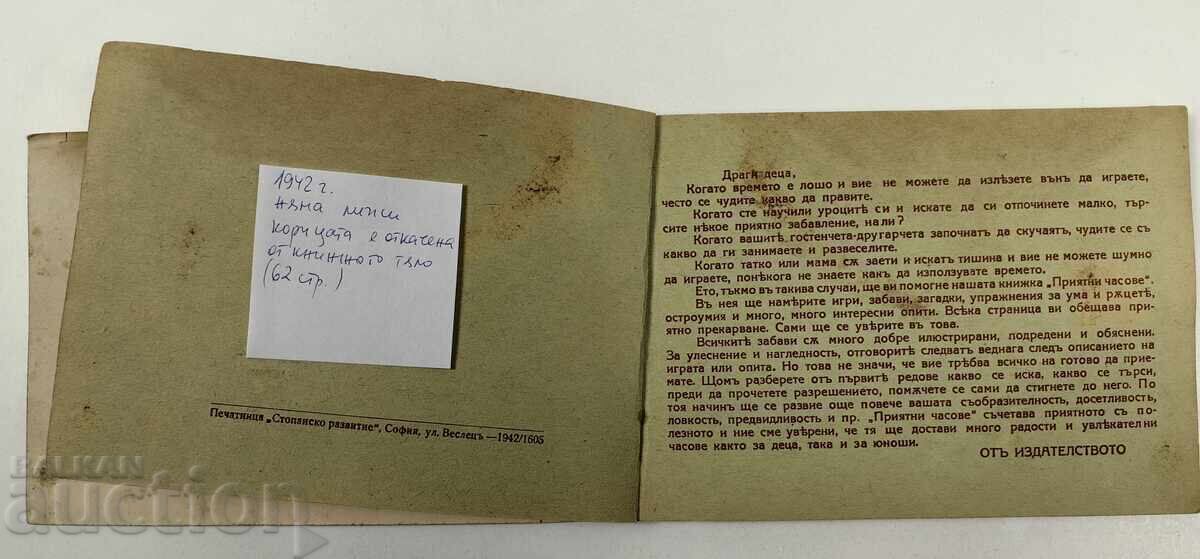 1942 г.
няма липси
корицата е откачена
от книжното тяло
(62 стр.)
Печатница „Стопанско развитие", София, ул. Веслецъ —1942/1605
Драги деца,
Когато времето е лошо и вие не можете да излѣзете вънъ да играете,
често се чудите какво да правите.
Когато сте научили уроцитѣ си и искате да си отпочинете малко, тър-
сите нѣкое приятно забавление, нали?
Когато вашитѣ гостенчета-другарчета започнатъ да скучаятъ, чудите се съ
какво да ги занимаете и развеселите.
Когато татко или мама сѫ заети и искатъ тишина и вие не можете шумно
да играете, понѣкога не знаете какъ да използувате времето.
Ето, тъкмо въ такива случаи, ще ви помогне нашата книжка „Приятни часове".
Въ нея ще намѣрите игри, забави, загадки, упражнения за ума и рѫцетѣ,
остроумия и много, много интересни опити. Всѣка страница ви обещава при-
ятно прекарване. Сами ще се увѣрите въ това.
Всичкитѣ забави сѫ много добре илюстрирани, подредени и обяснени.
За улеснение и нагледность, отговоритѣ следватъ веднага следъ описанието на
играта или опита. Но това не значи, че вие трѣбва всичко на готово да прие-
мате. Щомъ разберете отъ първитѣ редове какво се иска, какво се търси,
преди да прочетете разрешението, помѫчете се сами да стигнете до него. По
тоя начинъ ще се развие още повече вашата съобразителность, досетливость,
ловкость, предвидливость и пр. „Приятни часове" съчетава приятното съ по-
лезното и ние сме увѣрени, че тя ще достави много радости и увлѣкателни
часове както за деца, така и за юноши.
ОТЪ ИЗДАТЕЛСТВОТО
BALKAN
auction